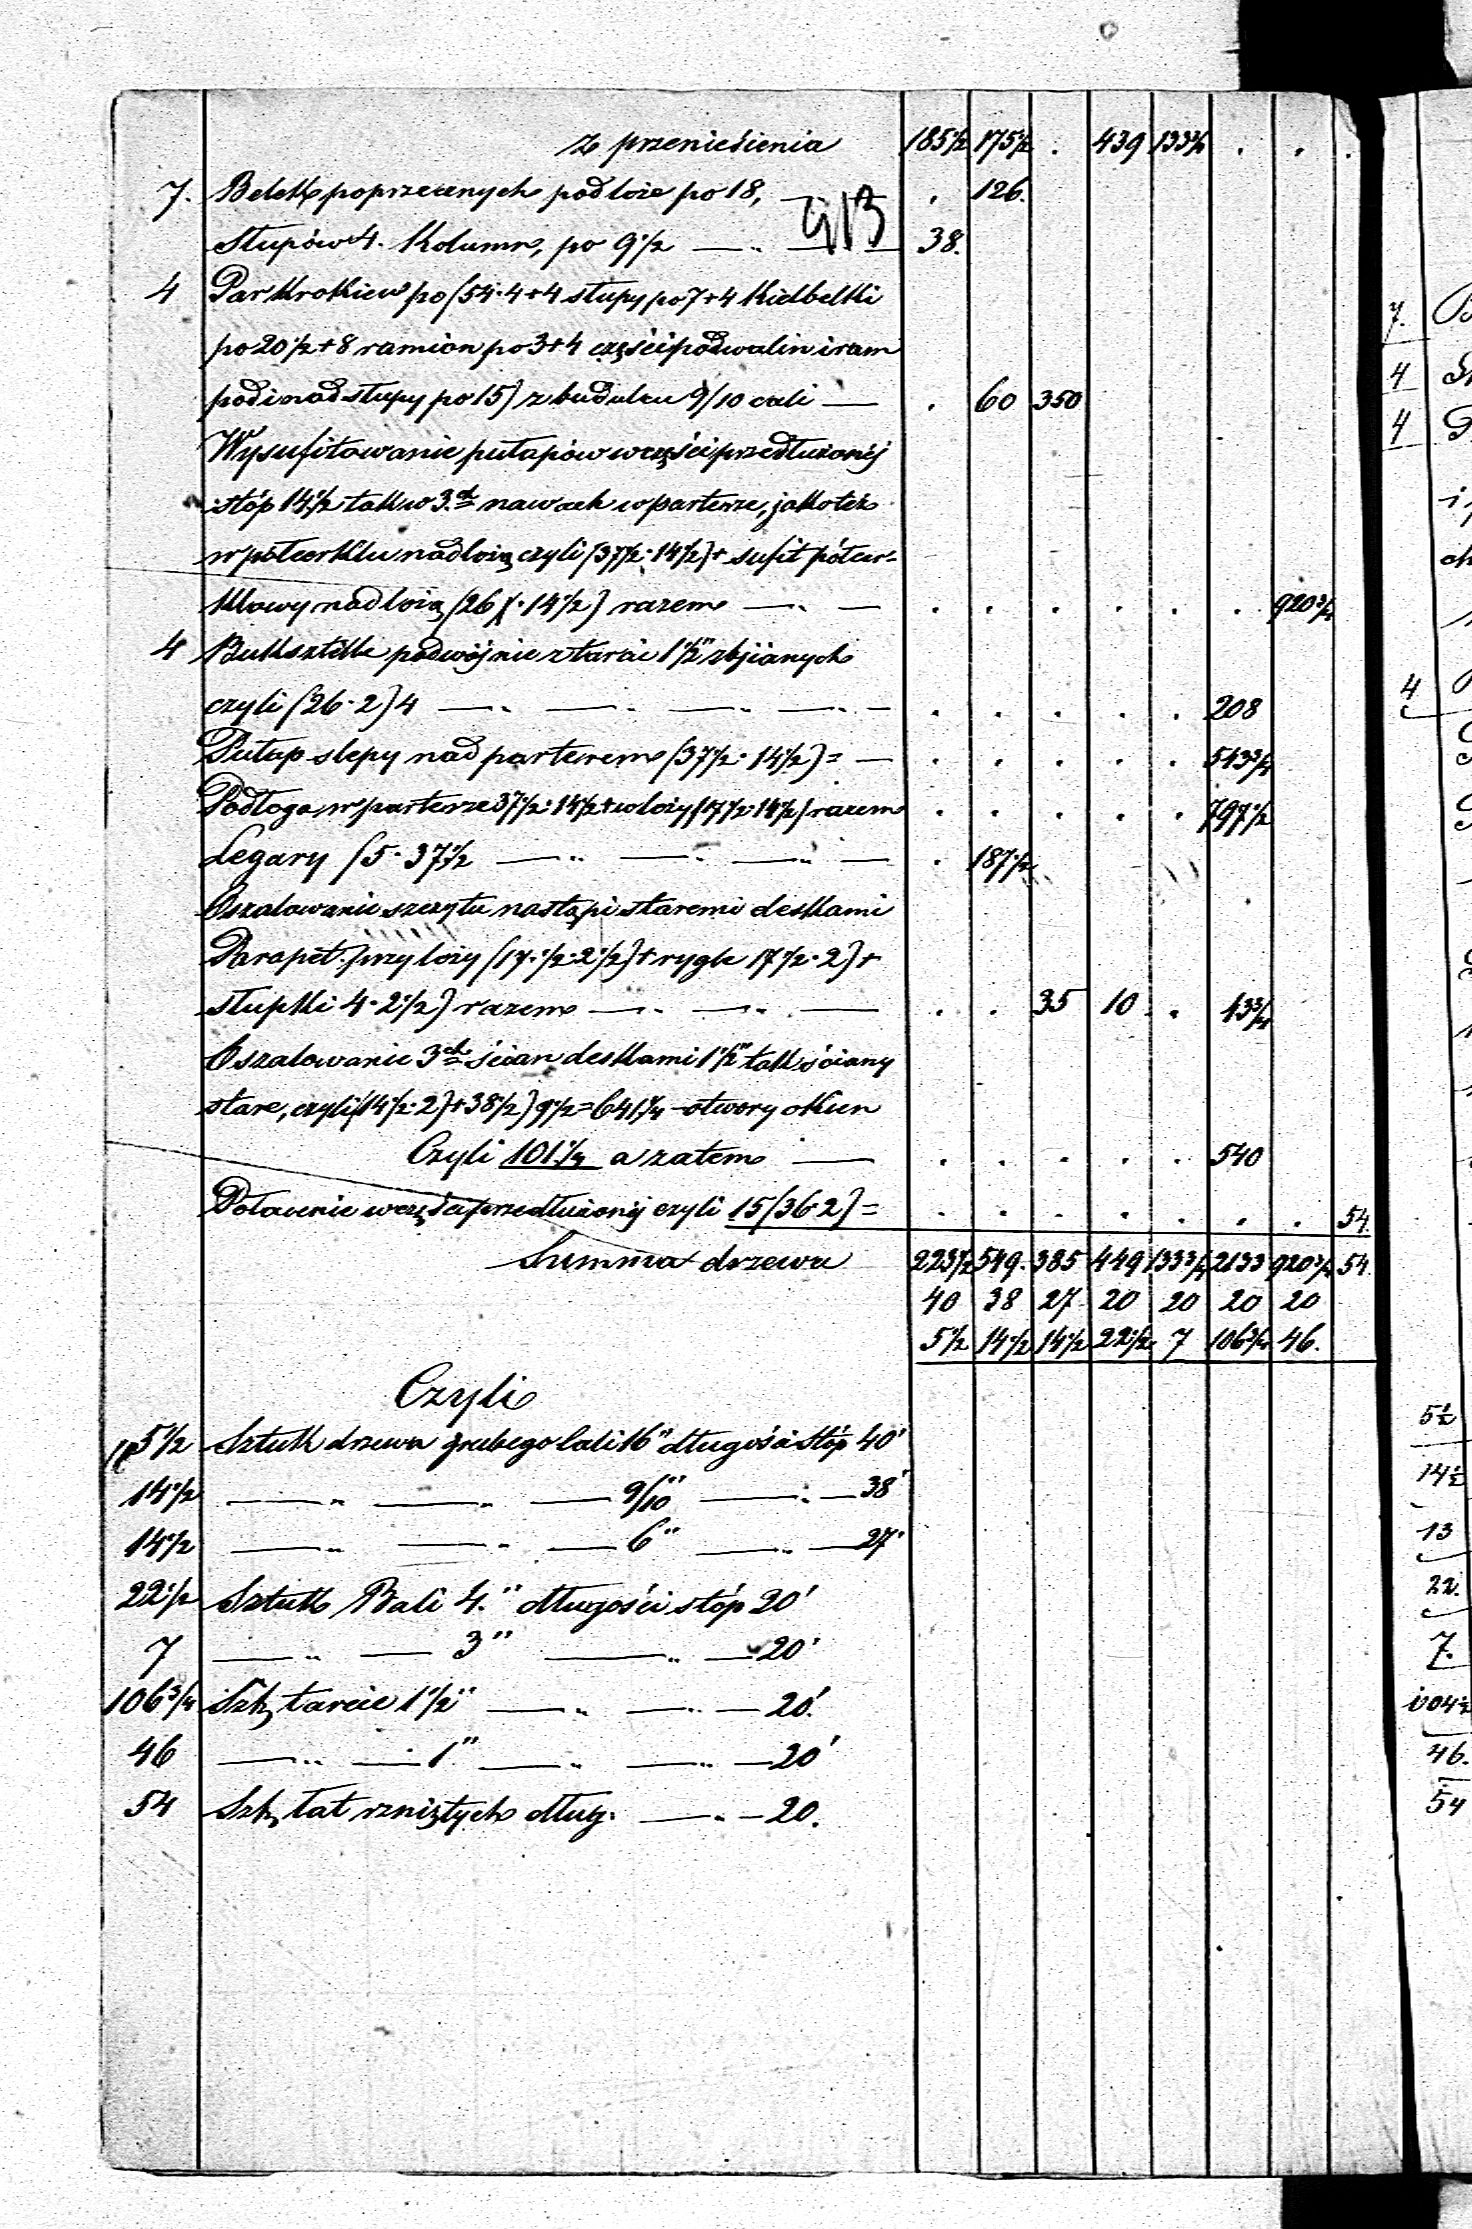 z przeniesienia 185½ 175½ . 439 133¾ . . .
7. Belek poprzecznych pod loże po 18, . 126.
913
Słupów 4. Kolumn, po 9½ 38.
4 Par Krokiew po (54·4+4 słupy po 7+4 Kielbelki
po 20½+8 ramion po 3+4 części podwalin i ram
pod i nad słupy po 15) z budulcu 9/10 cali . 60 350
Wysufitowanie pułapów w części przedłużonéj
stóp 14½ tak w 3.ch nawach w parterze, jako też
w półcerklu nad lożą czyli (37½·14½)+ sufit półcer-
klowy nad lożą (26·14½) razem . . . . . . . 920¾
4 Buksztelle podwójnie z tarcic 1½" zbijanych
czyli (26·2) 4 . . . . . 208
Pułap slepy nad parterem (37½·14½)= . . . . . 543¾
Podłoga w parterze 37½·14½+w loży (17½·14½) razem . . . . . 797½
Legary (5·37½ . 187½
Oszalowanie szczytu nastąpi staremi deskami
Parapet przy loży (17·½·2½)+rygle 17½·2)+
słupki 4·2½) razem . . 35 10 . 43¾
Oszalowanie 3ch ścian deskami 1½" tak ściany
stare, czyli (14½·2)+38½) 9½=641¼ - otwory okien
Czyli 101¼ a zatem . . . . . 540
Połacenie w części przedłużonéj czyli 15(36·2)= . . . . . . . 54.
Summa drzewa 223½ 549. 385 449 133¾ 2133 920¾ 54
40 38 27 20 20 20 20
5½ 14½ 14½ 22½ 7 106¾ 46.
Czyli
5½ Sztuk drzewa grubego cali 16" długości stóp 40'
14½ 9/10" 38'
14½ 6" 27'
22½ Sztuk Bali 4." długości stóp 20'
7 3" 20'
106¾ Szk tarcic 1½" 20'.
46 1" 20'
54 Szk łat rzniętych dług. 20.
7.
4
4
4
5½
14½
13
22.
7.
104½
46.
54